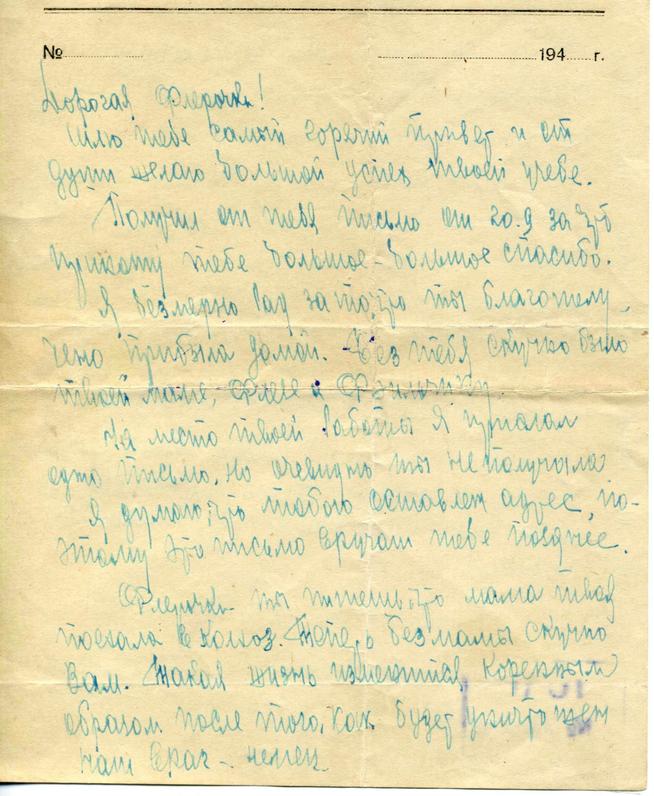 № 194 г.
Дорогая Флерочка!
Шлю тебе самый горячий привет и от
души желаю большой успех твоей учебе.
Получил от тебя письмо от 20.9 за что
приношу тебе большое-большое спасибо.
Я безмерно рад за то, что ты благополу-
чено прибыла домой. Без тебя скучно было
твоей маме, Флюе и
На место твоей работы я прислал
одно письмо, но очевидно ты не получила
Я думаю, что тобою оставлен адрес, по-
этому это письмо вручат тебе позднее.
Флерочка ты пишешь, что мама твоя
поехала в колхоз. Теперь без мамы скучно
Вам. Такая жизнь изменится коренным
образом после того, как будет уничтожен
наш враг - немец